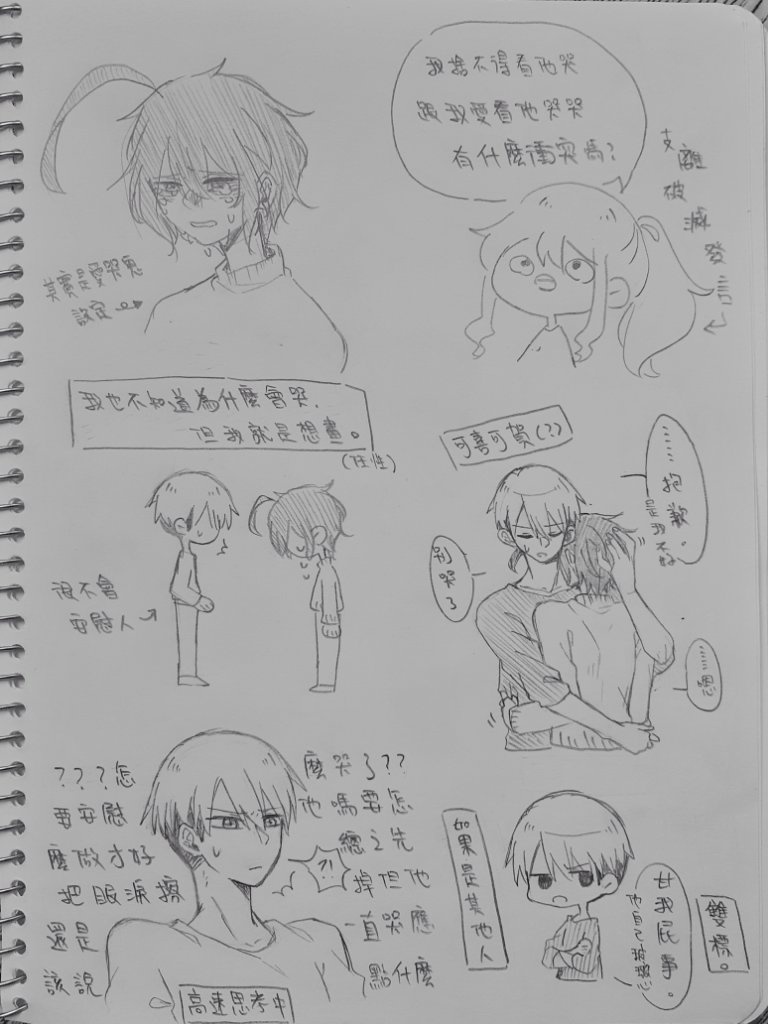 我捨不得看他哭
跟我愛看他哭哭
有什麼衝突嗎?
支離破滅發言
其實是愛哭鬼
設定
我也不知道為什麼會哭,
但我就是想畫。
(任性)
很不會
安慰人
可喜可賀(??)
……抱歉。
是我不好
別哭了
……嗯
???怎麼哭了??
要安慰他嗎要怎
麼做才好總之先
把眼淚擦掉但他
還是一直哭應
該說點什麼
?!
高速思考中
如果是其他人
甘我屁事。
雙標。